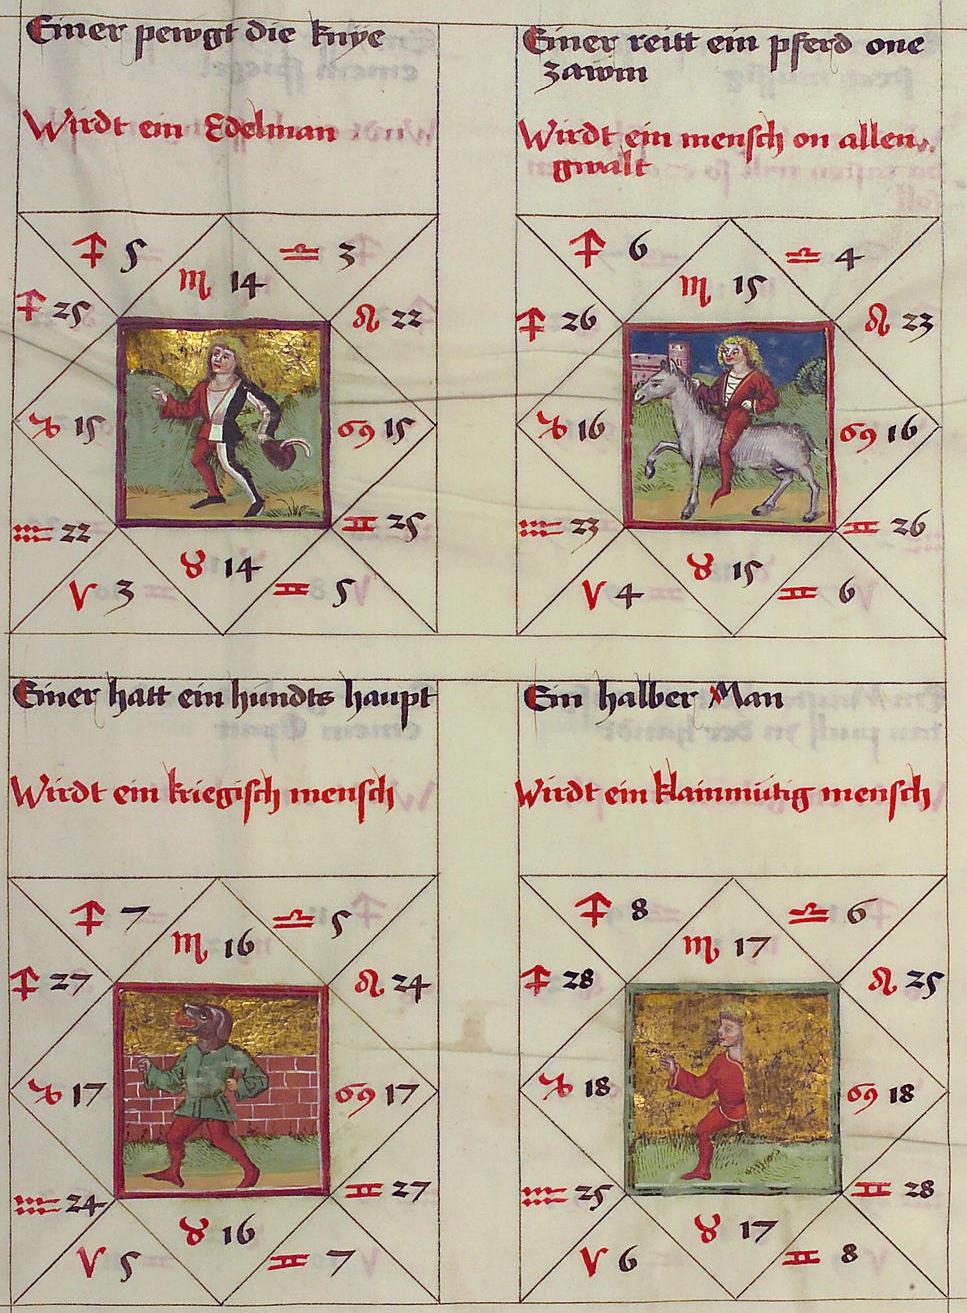 Einer pewgt die knye
Wirdt ein Edelman
♐ 5
♏ 14
♎ 3
♐ 25
♌ 22
♑ 15
♋ 15
♒ 22
♊ 25
♈ 3
♉ 14
♊ 5
Einer reitt ein pferd one
zawm
Wirdt ein mensch on allen
gwalt
♐ 6
♏ 15
♎ 4
♐ 26
♌ 23
♑ 16
♋ 16
♒ 23
♊ 26
♈ 4
♉ 15
♊ 6
Einer hatt ein hundts haupt
Wirdt ein kriegisch mensch
♐ 7
♏ 16
♎ 5
♐ 27
♌ 24
♑ 17
♋ 17
♒ 24
♊ 27
♈ 5
♉ 16
♊ 7
Ein halber Man
Wirdt ein klainmütig mensch
♐ 8
♏ 17
♎ 6
♐ 28
♌ 25
♑ 18
♋ 18
♒ 25
♊ 28
♈ 6
♉ 17
♊ 8